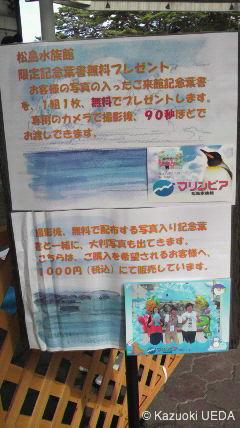 松島水族館
限定記念葉書無料プレゼント
お客様の写真の入ったご来館記念葉書
を、1組1枚、無料でプレゼントします。
専用のカメラで撮影後、90秒ほどで
お渡しできます。
マリンピア
松島水族館
撮影後、無料で配布する写真入り記念葉
書と一緒に、大判写真も出てきます。
こちらは、ご購入を希望されるお客様へ、
1000円（税込）にて販売しています。
© Kazuoki UEDA